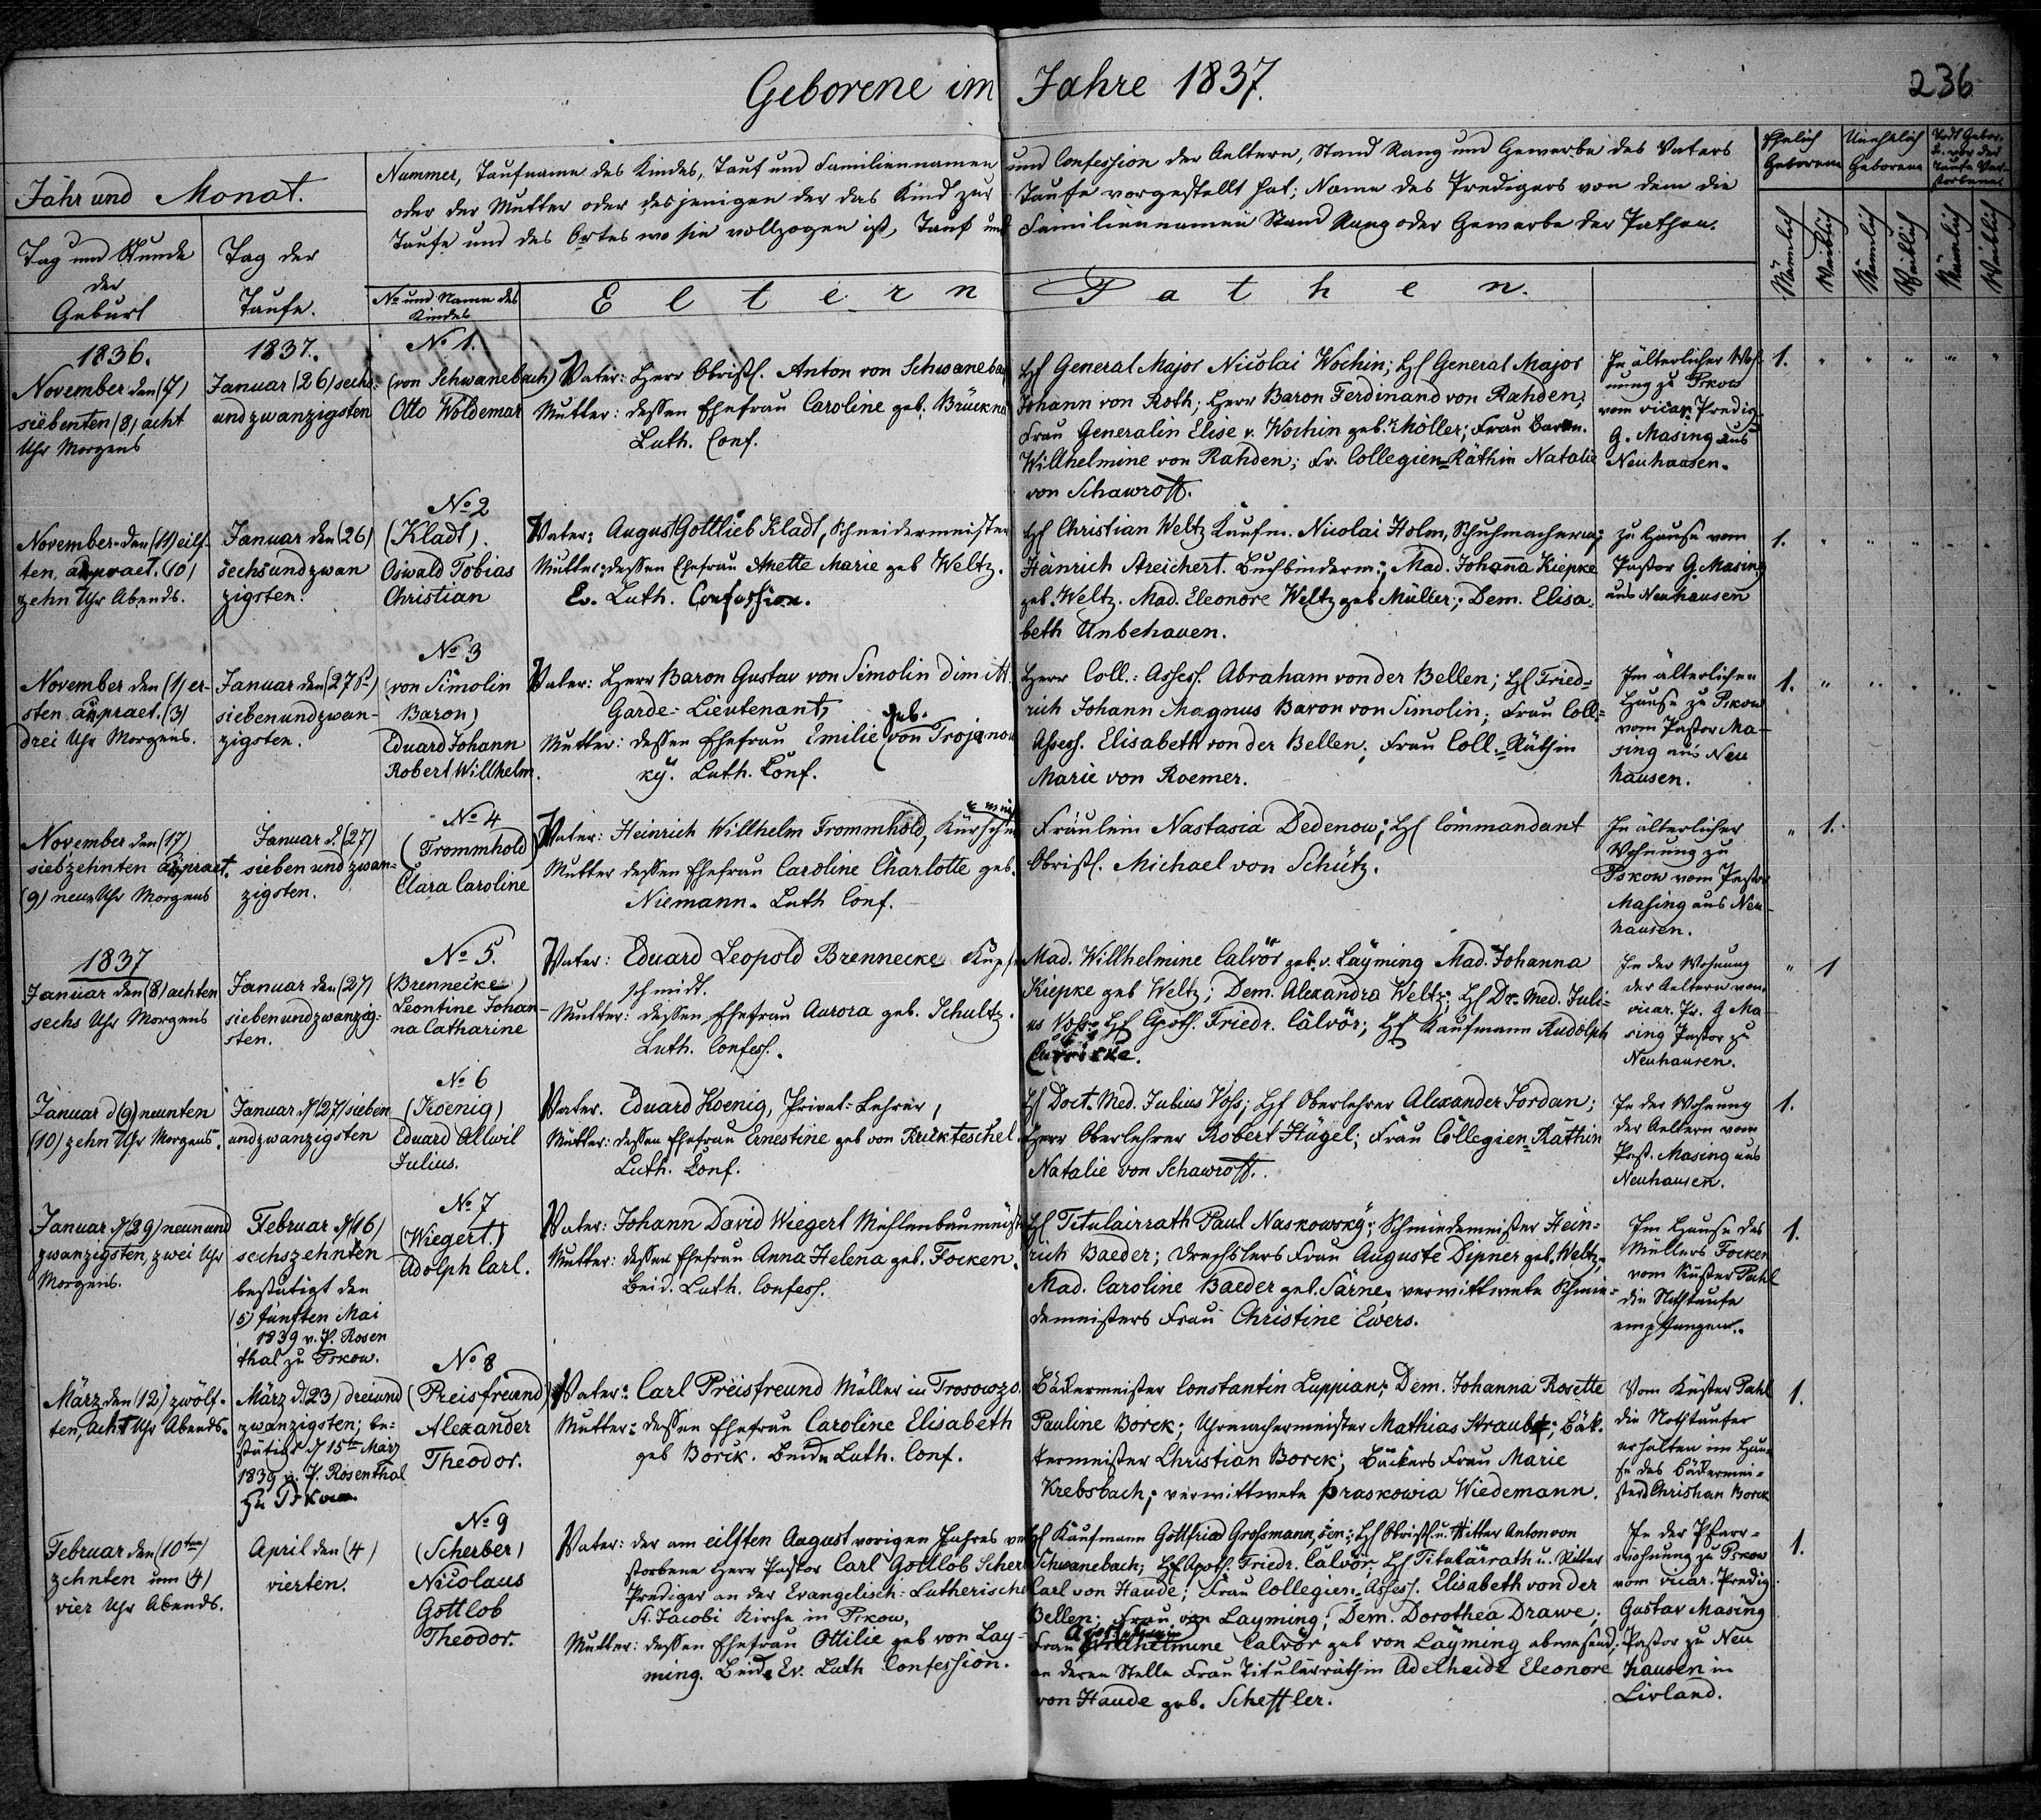 Geborene im Jahre 1837.
236
Jahr und Monat.
Tag und Stunde
der
Geburt
Tag der
Taufe.
Nummer, Taufname des Kindes, Tauf und Familiennamen und Confession der Aeltern, Stand Rang und Gewerbe des Vaters
oder der Mutter oder desjenigen der das Kind zur Taufe vorgestellt hat; Name des Predigers von dem die
Taufe und des Ortes wo sie vollzogen ist, Tauf und Familiennamen Stand Rang oder Gewerbe der Pathen.
No und Name des
Kindes
Eltern
Pathen.
Ehelich
Geborene
Unehelich
Geborene
Todt Gebor.
u. vor der
Taufe Ver-
storbene
Männlich
Weiblich
Männlich
Weiblich
Männlich
Weiblich
1836.
November den (7)
siebenten (8) acht
Uhr Morgens
1837.
Januar (26) sechs-
undzwanzigsten
No 1.
(von Schwanebach)
Otto Woldemar
Vater: Herr Obristl. Anton von Schwaneba
Mutter: dessen Ehefrau Caroline geb. Brückn
Luth. Conf.
H. General Major Nicolai Wochin; H. General Major
Johann von Roth; Herr Baron Ferdinand von Rahden;
Frau Generalin Elise v. Wochin geb. Möller; Frau Baron.
Willhelmine von Rahden; Fr. Collegien-Räthin Natalie
von Schawroff.
In älterlicher Woh-
nung zu Pskow
vom vicar. Predig.
G. Masing aus
Neuhausen.
1.
No 2
November den (11) eilf-
ten, anpraet. (10)
zehn Uhr Abends.
Januar den (26)
sechsundzwan
zigsten.
(Kladt).
Oswald Tobias
Christian
Vater: August Gottlieb Kladt, Schneidermeister
Mutter: dessen Ehefrau Anette Marie geb Weltz.
Ev. Luth. Confession.
H. Christian Weltz Kaufm. Nicolai Holm, Schuhmacherm;
Heinrich Areichert. Buchbinderm:; Mad. Johanna Kiepke
geb. Weltz. Mad. Eleonore Weltz geb Müller; Dem. Elisa-
beth Unbehauen.
zu Hause vom
Pastor G. Masing
aus Neuhausen
1.
No 3
November den (1) er-
sten anpraet. (3)
drei Uhr Morgens.
Januar den (27)
siebenundzwan-
zigsten.
(von Simolin
Baron)
Eduard Johann
Robert Willhelm.
Vater: Herr Baron Gustav von Simolin dimitt.
Garde-Lieutenant,
Mutter: dessen Ehefrau Emilie geb. von Trojanow
ky. Luth. Conf.
Herr Coll.: Assess. Abraham von der Bellen; H. Fried-
rich Johann Magnus Baron von Simolin; Frau Coll-
Assess. Elisabeth von der Bellen; Frau Coll.-Räthin
Marie von Roemer.
Im älterlichen
Hause zu Pskow
vom Pastor Ma-
sing aus Neu
hausen.
1.
No 4
November den (17)
siebzehnten anpraet.
(9) neun Uhr Morgens
Januar d. (27)
sieben und zwan-
zigsten.
(Frommhold)
Clara Caroline
Vater: Heinrich Willhelm Frommhold, Kürschne
Mutter dessen Ehefrau Caroline Charlotte geb.
Niemann. Luth Conf.
Fräulein Nastasia Dedenow; H. Commandant
Obristl. Michael von Schütz.
In älterlicher
Wohnung zu
Pskow vom Pastor
Masing aus Neu-
hausen.
1.
1837
Januar den (8) achten
sechs Uhr Morgens
Januar den (27)
siebenundzwanzig-
sten.
No 5.
(Brennecke)
Leontine Johan-
na Catharine
Vater: Eduard Leopold Brennecke Kupfer
schmidt.
Mutter: dessen Ehefrau Aurora geb. Schultz.
Luth. Confess.
Mad. Willhelmine Calvör geb. v. Layming Mad. Johanna
Kiepke geb Weltz; Dem. Alexandra Weltz; H. Dr. Med. Juli-
us Voss; H. Apoth. Friedr. Calvör; H. Kaufmann Rudolph
In der Wohnung
der Aeltern vom
vicar. Pr. G Ma
sing Pastor zu
Neuhausen.
1
No 6
Januar d (9) neunten
(10) zehn Uhr Morgens.
Januar d (27) sieben
undzwanzigsten
(Koenig)
Eduard Allwil
Julius.
Vater. Eduard Koenig, Privat-Lehrer,
Mutter: dessen Ehefrau Ernestine geb von Krickteschel
Luth. Conf.
H. Doct. Med. Julius Voss; H. Oberlehrer Alexander Jordan;
Herr Oberlehrer Robert Hügel; Frau Collegien-Räthin
Natalie von Schawroff.
In der Wohnung
der Aeltern vom
Past. Masing aus
Neuhausen.
1.
No 7
Januar d (29) neunund
zwanzigsten, zwei Uhr
Morgens.
Februar d (16)
sechszehnten
bestätigt den
(5) fünften Mai
1839 v. P. Rosen
thal zu Pskow.
(Wiegert.)
Adolph Carl.
Vater: Johann David Wiegert Mühlenbaumeist
Mutter: dessen Ehefrau Anna Helena geb. Focken.
Beid. Luth. Confess.
H. Titulairrath Paul Naskowsky; Schmiedemeister Hein-
rich Baeder; Drechslers Frau Auguste Dipner geb. Weltz;
Mad. Caroline Baeder geb. Särne. verwittwete Schmie-
demeisters Frau Christine Ewers.
Im Hause des
Müllers Focken
vom Küster Pahl
die Nothtaufe
empfangen.
1.
No 8
März den (12) zwölf-
ten, acht Uhr Abends.
März d. (23) dreiund
zwanzigsten; be-
stätigt d 15ten März
1839 v. P. Rosenthal
zu Pskow.
(Preisfreund)
Alexander
Theodor.
Vater: Carl Preisfreund Müller in Trosowzo.
Mutter: dessen Ehefrau Caroline Elisabeth
geb Borck. Beide Luth. Conf.
Bäckermeister Constantin Luppian; Dem. Johanna Rosette
Pauline Borck; Uhrmachermeister Mathias Straub; Bäk-
kermeister Christian Borck; Bäckers Frau Marie
Krebsbach; verwittwete Praskowia Wiedemann.
Vom Küster Pahl
die Nothtaufe
erhalten im Hau-
se des Bäckermei-
sters Christian Borck
1.
No 9
Februar den (10ten)
zehnten um (4)
vier Uhr Abends.
April den (4)
vierten.
(Scherber)
Nicolaus
Gottlob
Theodor.
Vater: der am eilften August vorigen Jahres ver
storbene Herr Pastor Carl Gottlob Scherb
Prediger an der Evangelisch-Lutherische
St. Jacobi Kirche in Pskow,
Mutter: dessen Ehefrau Ottilie geb von Lay-
ming. Beide Ev. Luth Confession.
H. Kaufmann Gottfried Grossmann, sen.; H. Obristl. u. Ritter Anton von
Schwanebach; H. Apoth. Friedr. Calvör; H. Titulärrath u. Ritter
Carl von Haude; Frau Collegien-Assess. Elisabeth von der
Bellen; Frau von Layming; Dem. Dorothea Drawe;
Frau Willhelmine Calvör geb von Layming abwesend;
an deren Stelle Frau Titulärräthin Adelheide Eleonore
von Haude geb. Scheffler.
In der Pfarr-
wohnung zu Pskow
vom vicar. Predig.
Gustav Masing
Pastor zu Neu
hausen in
Livland.
1.